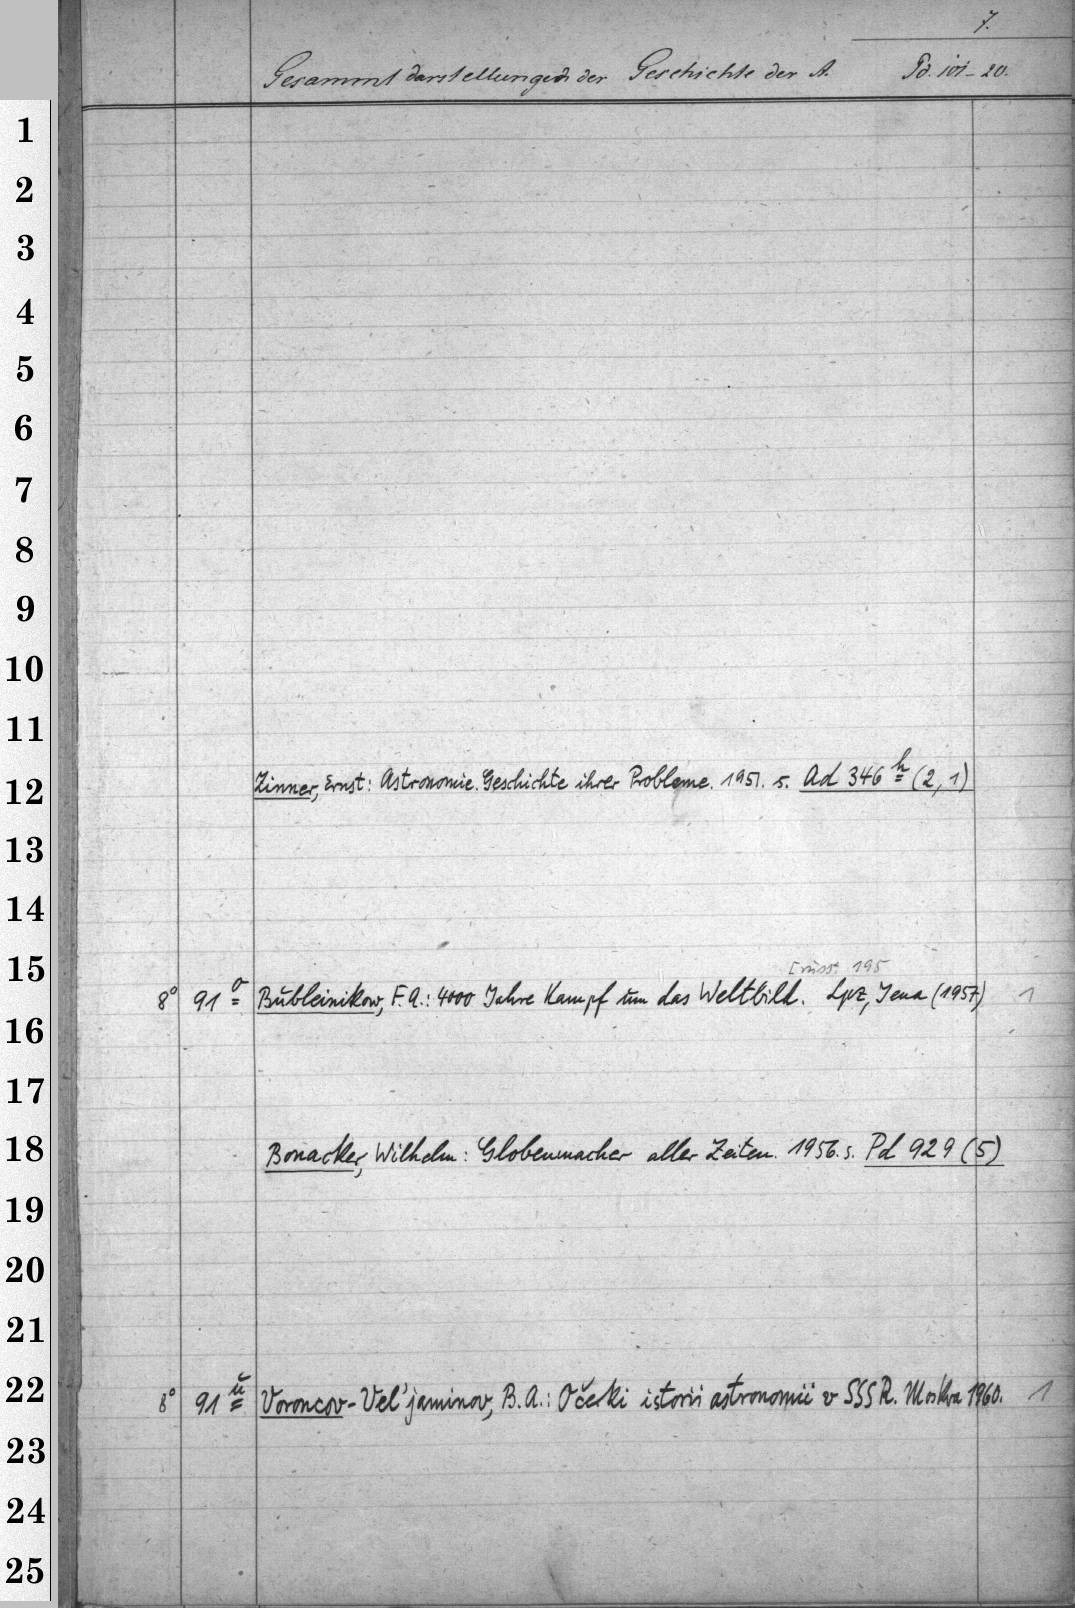 7.
Gesammtdarstellungen der Geschichte der A. Pd. 101-20.
1
2
3
4
5
6
7
8
9
10
11
12 Zinner, Ernst: Astronomie. Geschichte ihrer Probleme. 1951. s. Ad 346 h (2,1)
13
14
15 [russ. 195
8° 91 o Bubleinikow, F. A.: 4000 Jahre Kampf um das Weltbild. Lpz, Jena (1957) 1
16
17
18 Bonacker, Wilhelm: Globenmacher aller Zeiten. 1956. s. Pd 929 (5)
19
20
21
22 8° 91 u Voroncov-Vel'jaminov, B. A.: Očerki istorii astronomii v SSSR. Moskva 1960. 1
23
24
25